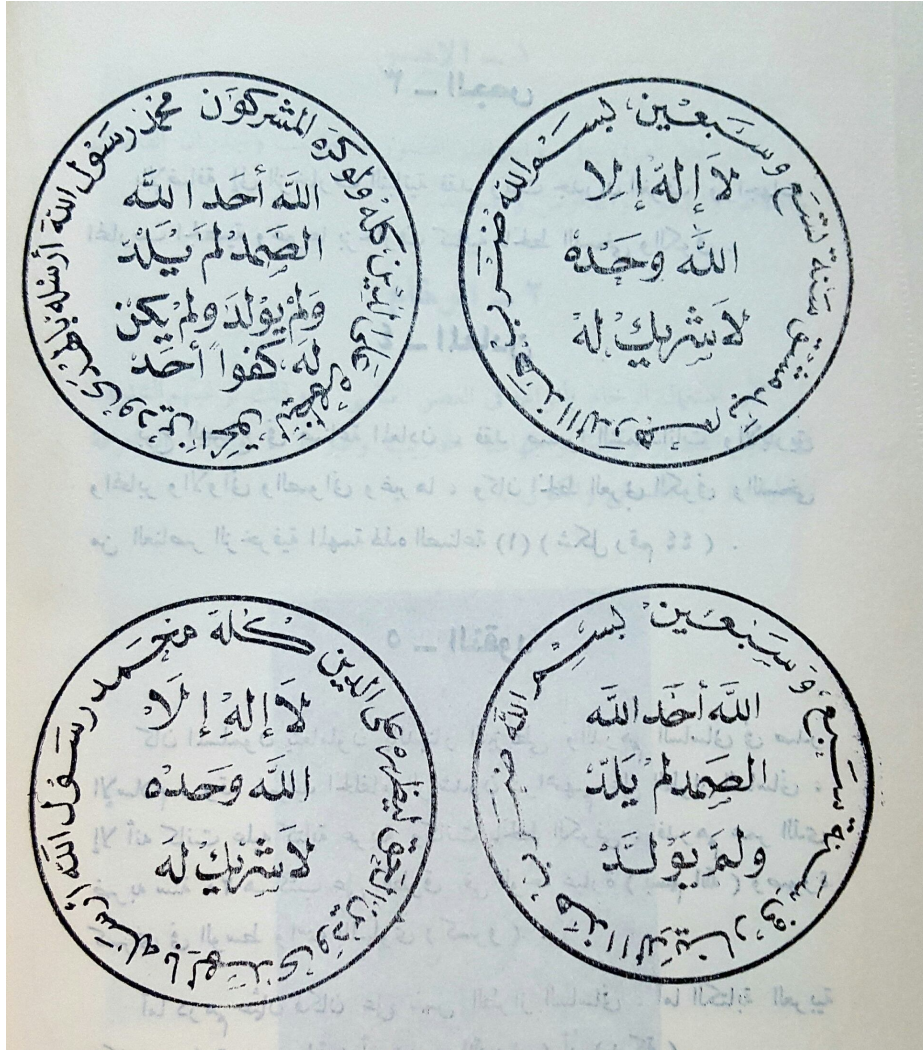 لا إله إلا
الله وحده
لا شريك له
بسم الله ضرب هذا الدرهم بدمشق سنة تسع وسبعين
الله أحد الله
الصمد لم يلد
ولم يولد ولم يكن
له كفوا أحد
محمد رسول الله أرسله بالهدى ودين الحق ليظهره على الدين كله ولو كره المشركون
الله أحد الله
الصمد لم يلد
ولم يولد
بسم الله ضرب هذا الدينار في سنة سبع وسبعين
لا إله إلا
الله وحده
لا شريك له
محمد رسول الله أرسله بالهدى ودين الحق ليظهره على الدين كله